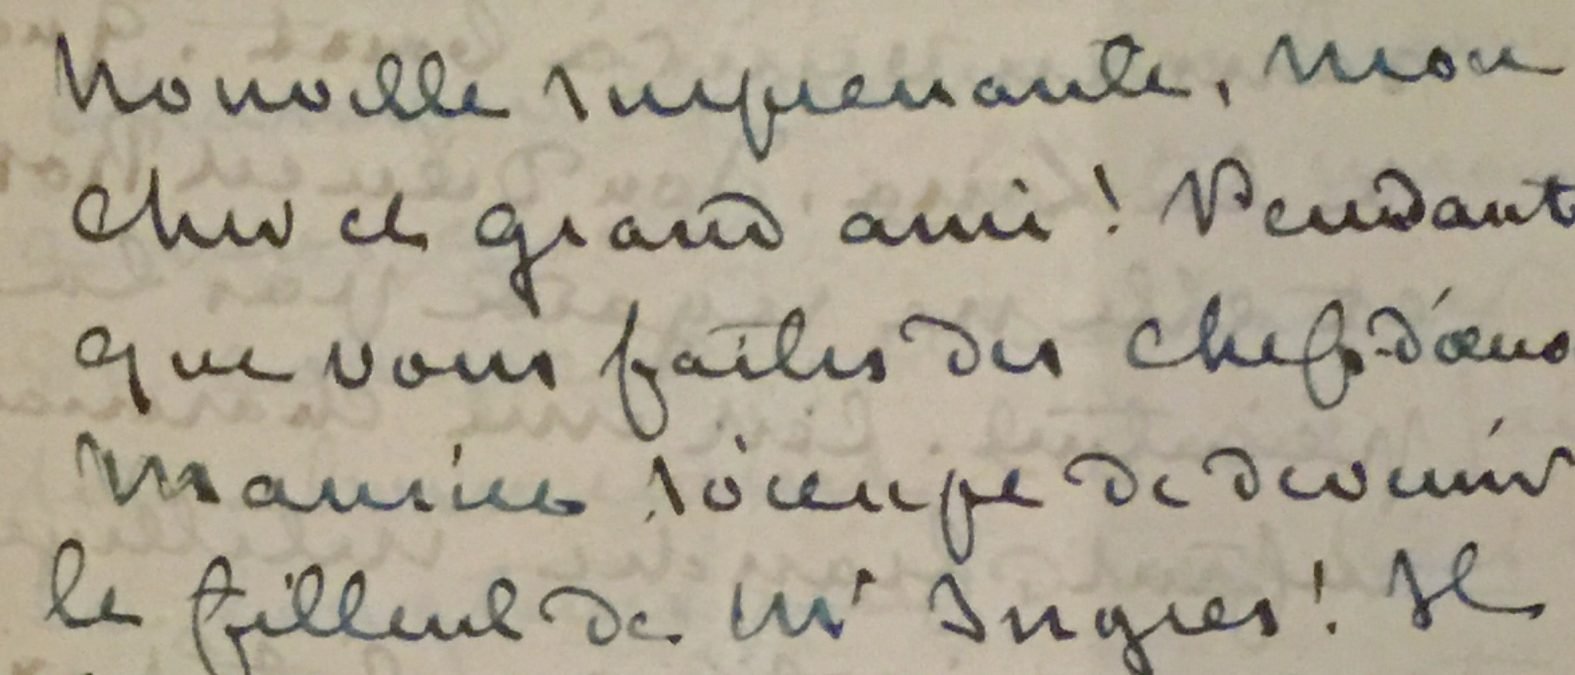 Nouvelle surprenante, mon
cher et grand ami ! Pendant
que vous faites des chefs-d'œuv
Maurice s'occupe de devenir
le filleul de Mr Ingres ! Il